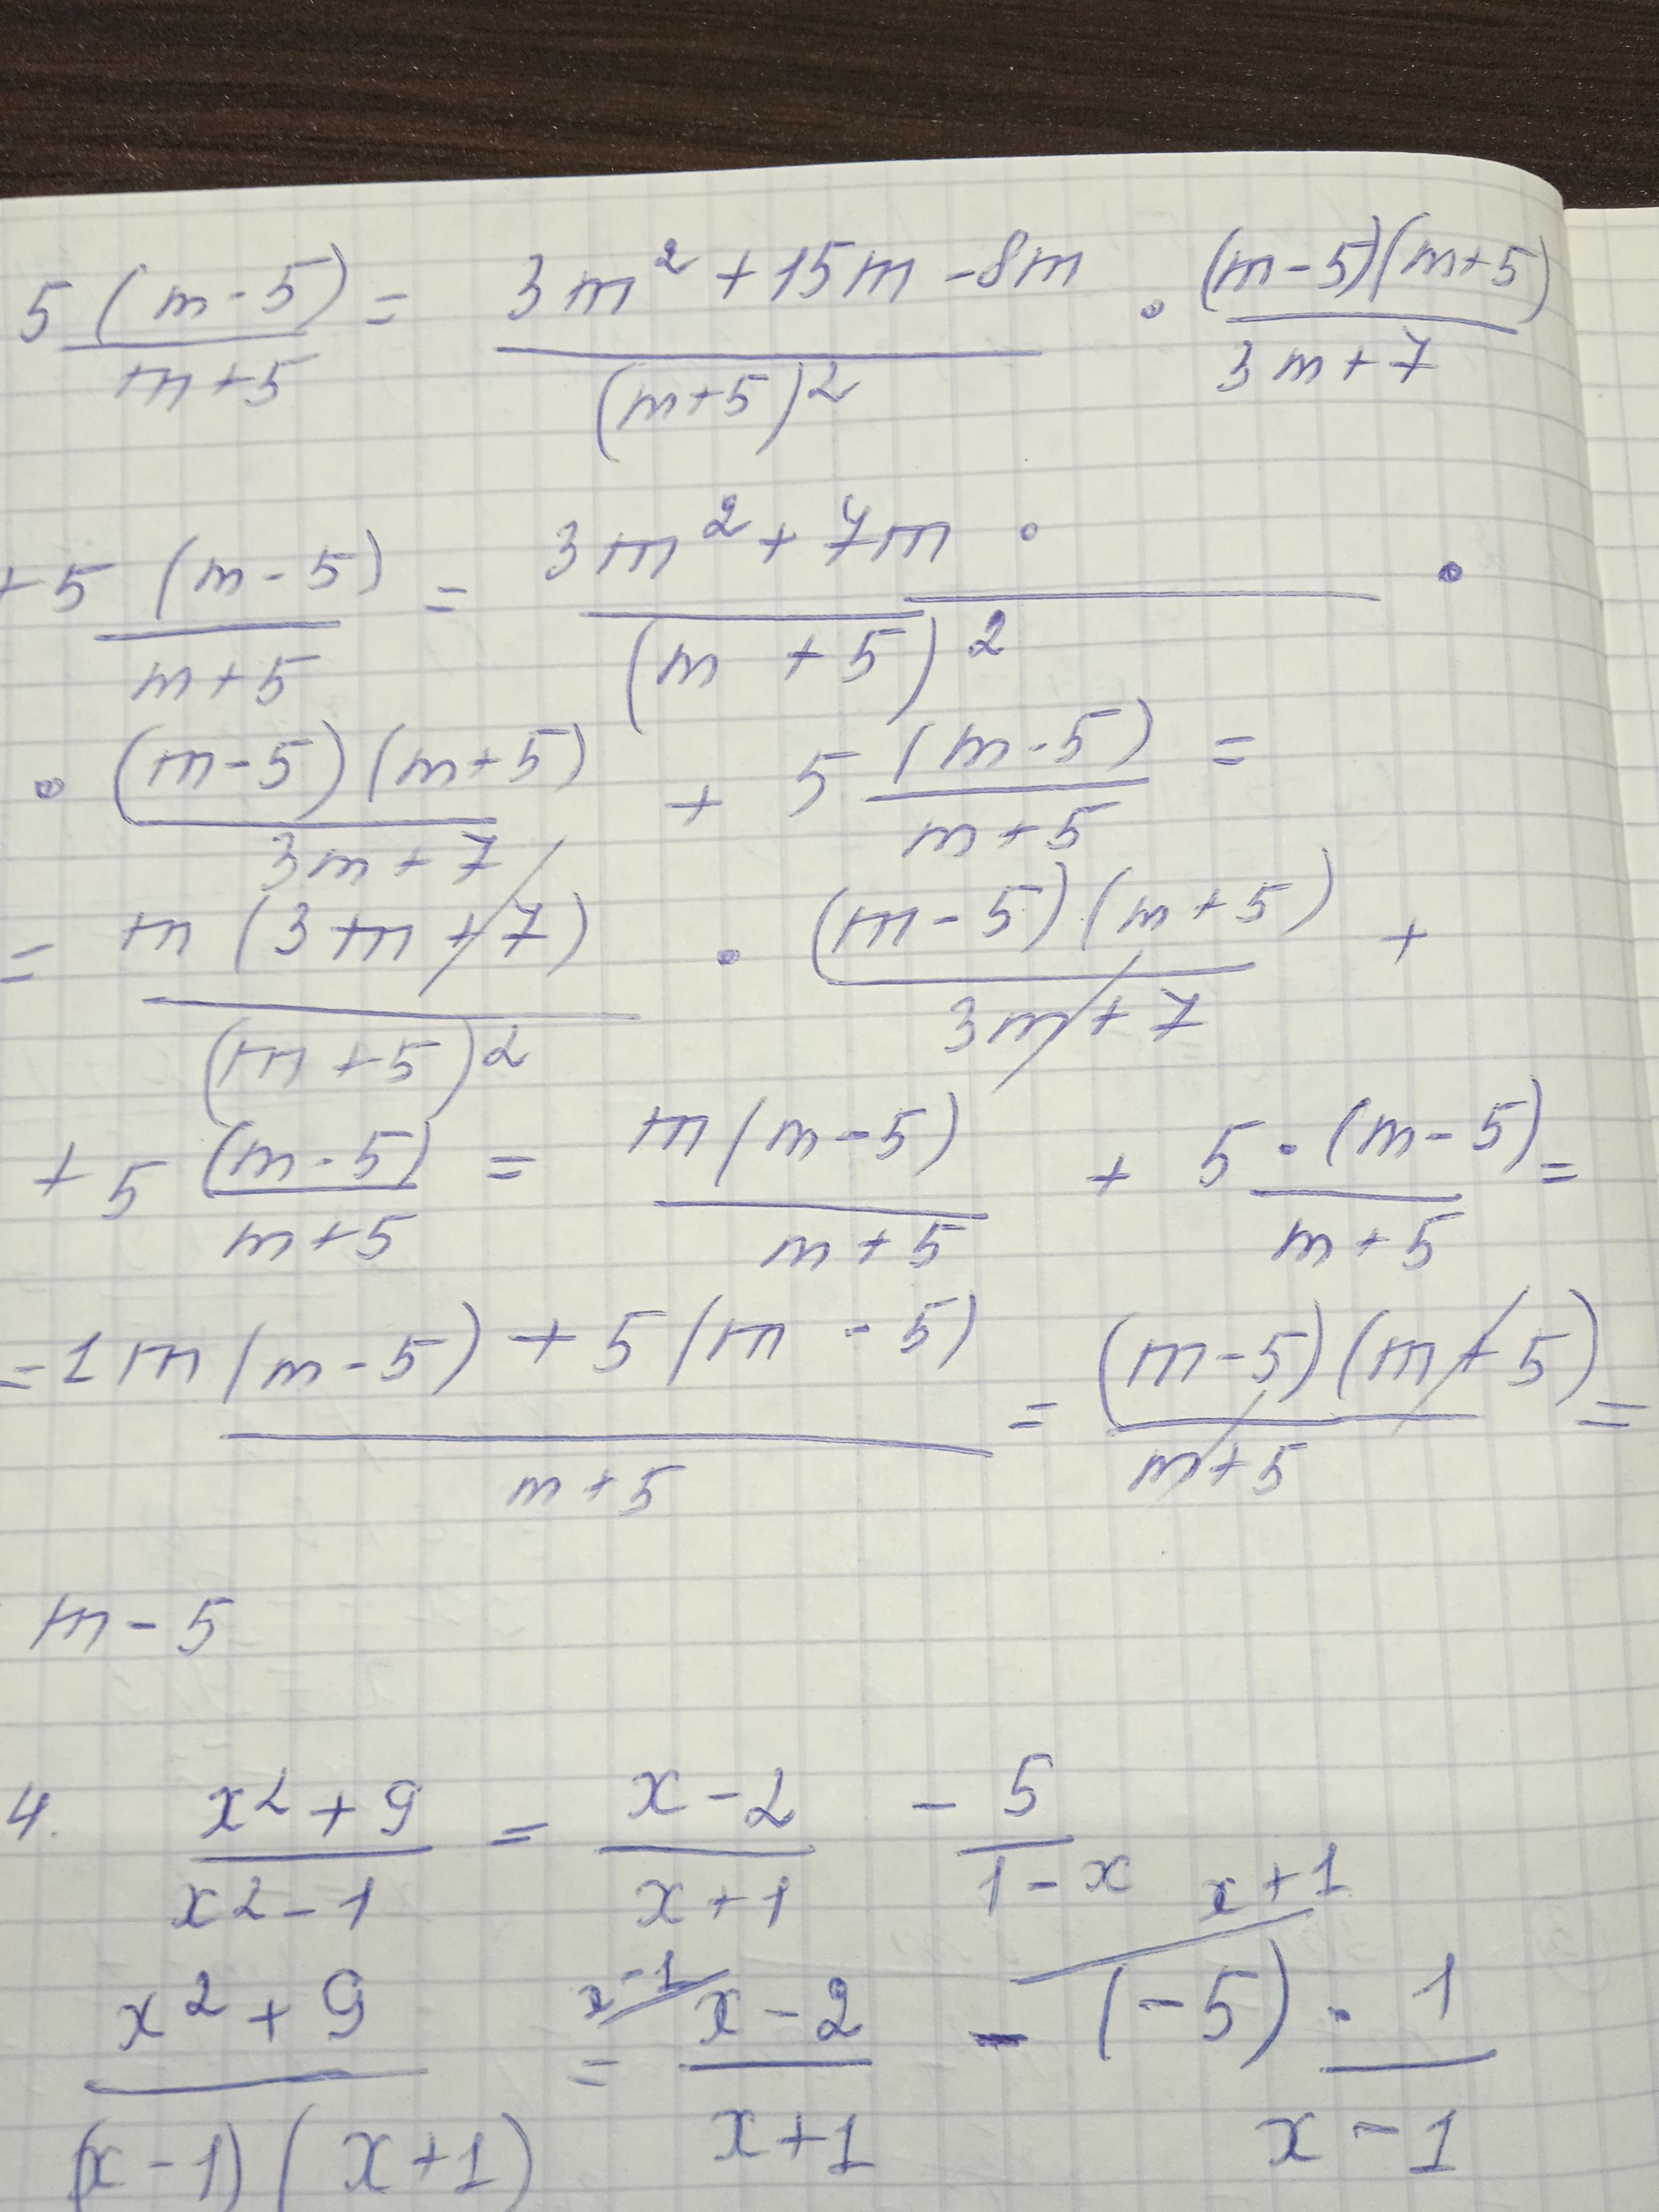 5 (m-5)/m+5 = 3m² + 15m - 8m/(m+5)² · (m-5)(m+5)/3m+7
+5 (m-5)/m+5 = 3m² + 7m ·/(m+5)² ·
· (m-5)(m+5)/3m+7 + 5 (m-5)/m+5 =
= m(3m+7)/(m+5)² · (m-5)(m+5)/3m+7 +
+5 (m-5)/m+5 = m(m-5)/m+5 + 5 · (m-5)/m+5 =
= 1m(m-5)+5(m-5)/m+5 = (m-5)(m+5)/m+5 =
m-5
4. x²+9/x²-1 = x-2/x+1 - 5/1-x
x-1 x+1
x²+9/(x-1)(x+1) = x-2/x+1 - (-5) · 1/x-1